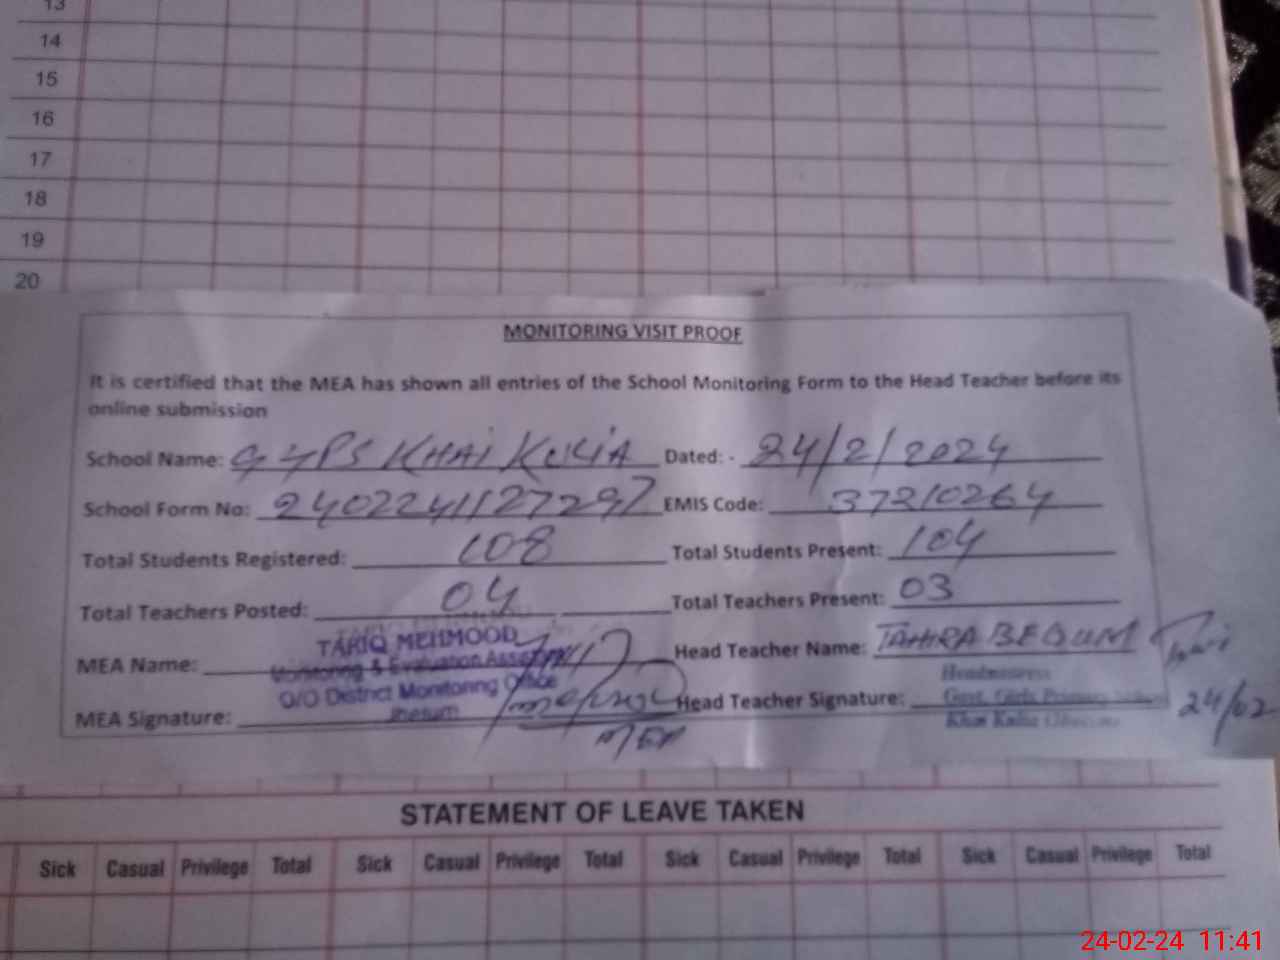 13
14
15
16
17
18
19
20
MONITORING VISIT PROOF
It is certified that the MEA has shown all entries of the School Monitoring Form to the Head Teacher before its
online submission
School Name: GGPS KHAI KULIA Dated: - 24/2/2024
School Form No: 2402241127297 EMIS Code: 37210264
Total Students Registered: 108 Total Students Present: 104
Total Teachers Posted: 04 Total Teachers Present: 03
MEA Name: TARIQ MEHMOOD Head Teacher Name: TAHIRA BEGUM
Monitoring & Evaluation Assistant
O/O District Monitoring Office
Jhelum
MEA Signature: MEA Head Teacher Signature: 24/02
Headmistress
Govt. Girls Primary School
STATEMENT OF LEAVE TAKEN
Sick Casual Privilege Total Sick Casual Privilege Total Sick Casual Privilege Total Sick Casual Privilege Total
24-02-24 11:41